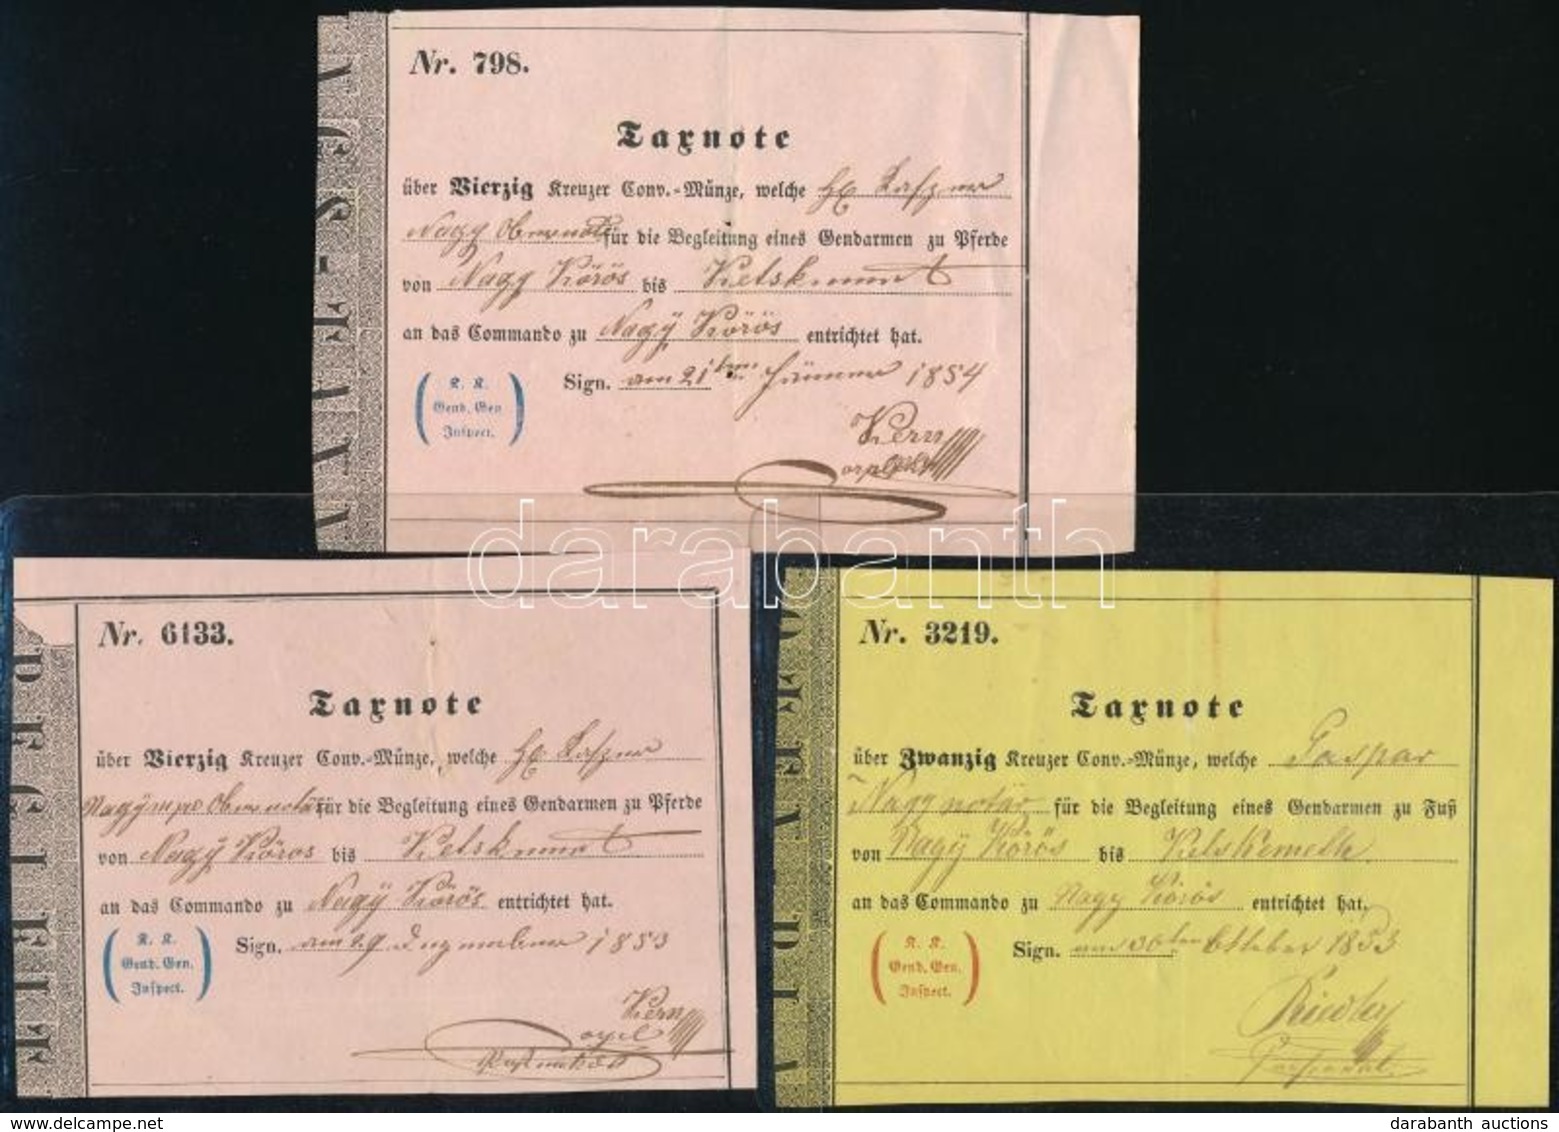 Nr. 798.
Taxnote
über Vierzig Kreuzer Conv.-Münze, welche
Nagy für die Begleitung eines Gendarmen zu Pferde
von Nagy Körös bis
an das Commando zu Nagÿ Körös entrichtet hat.
Sign. am 21 1854
K. K.
Gend. Gen
Inspect.
Kern
darabanth
Nr. 6133.
Taxnote
über Vierzig Kreuzer Conv.-Münze, welche
für die Begleitung eines Gendarmen zu Pferde
von Nagÿ Körös bis
an das Commando zu Nagÿ Körös entrichtet hat.
Sign. am 1853
K. K.
Gend. Gen.
Inspect.
Kern
Nr. 3219.
Taxnote
über Zwanzig Kreuzer Conv.-Münze, welche Gaspar
Nagy notär für die Begleitung eines Gendarmen zu Fuß
von Nagÿ Körös bis
an das Commando zu Nagy Körös entrichtet hat.
Sign. am 30ten October 1853
K. K.
Gend. Gen.
Inspect.
Riedler
darabanth auctions